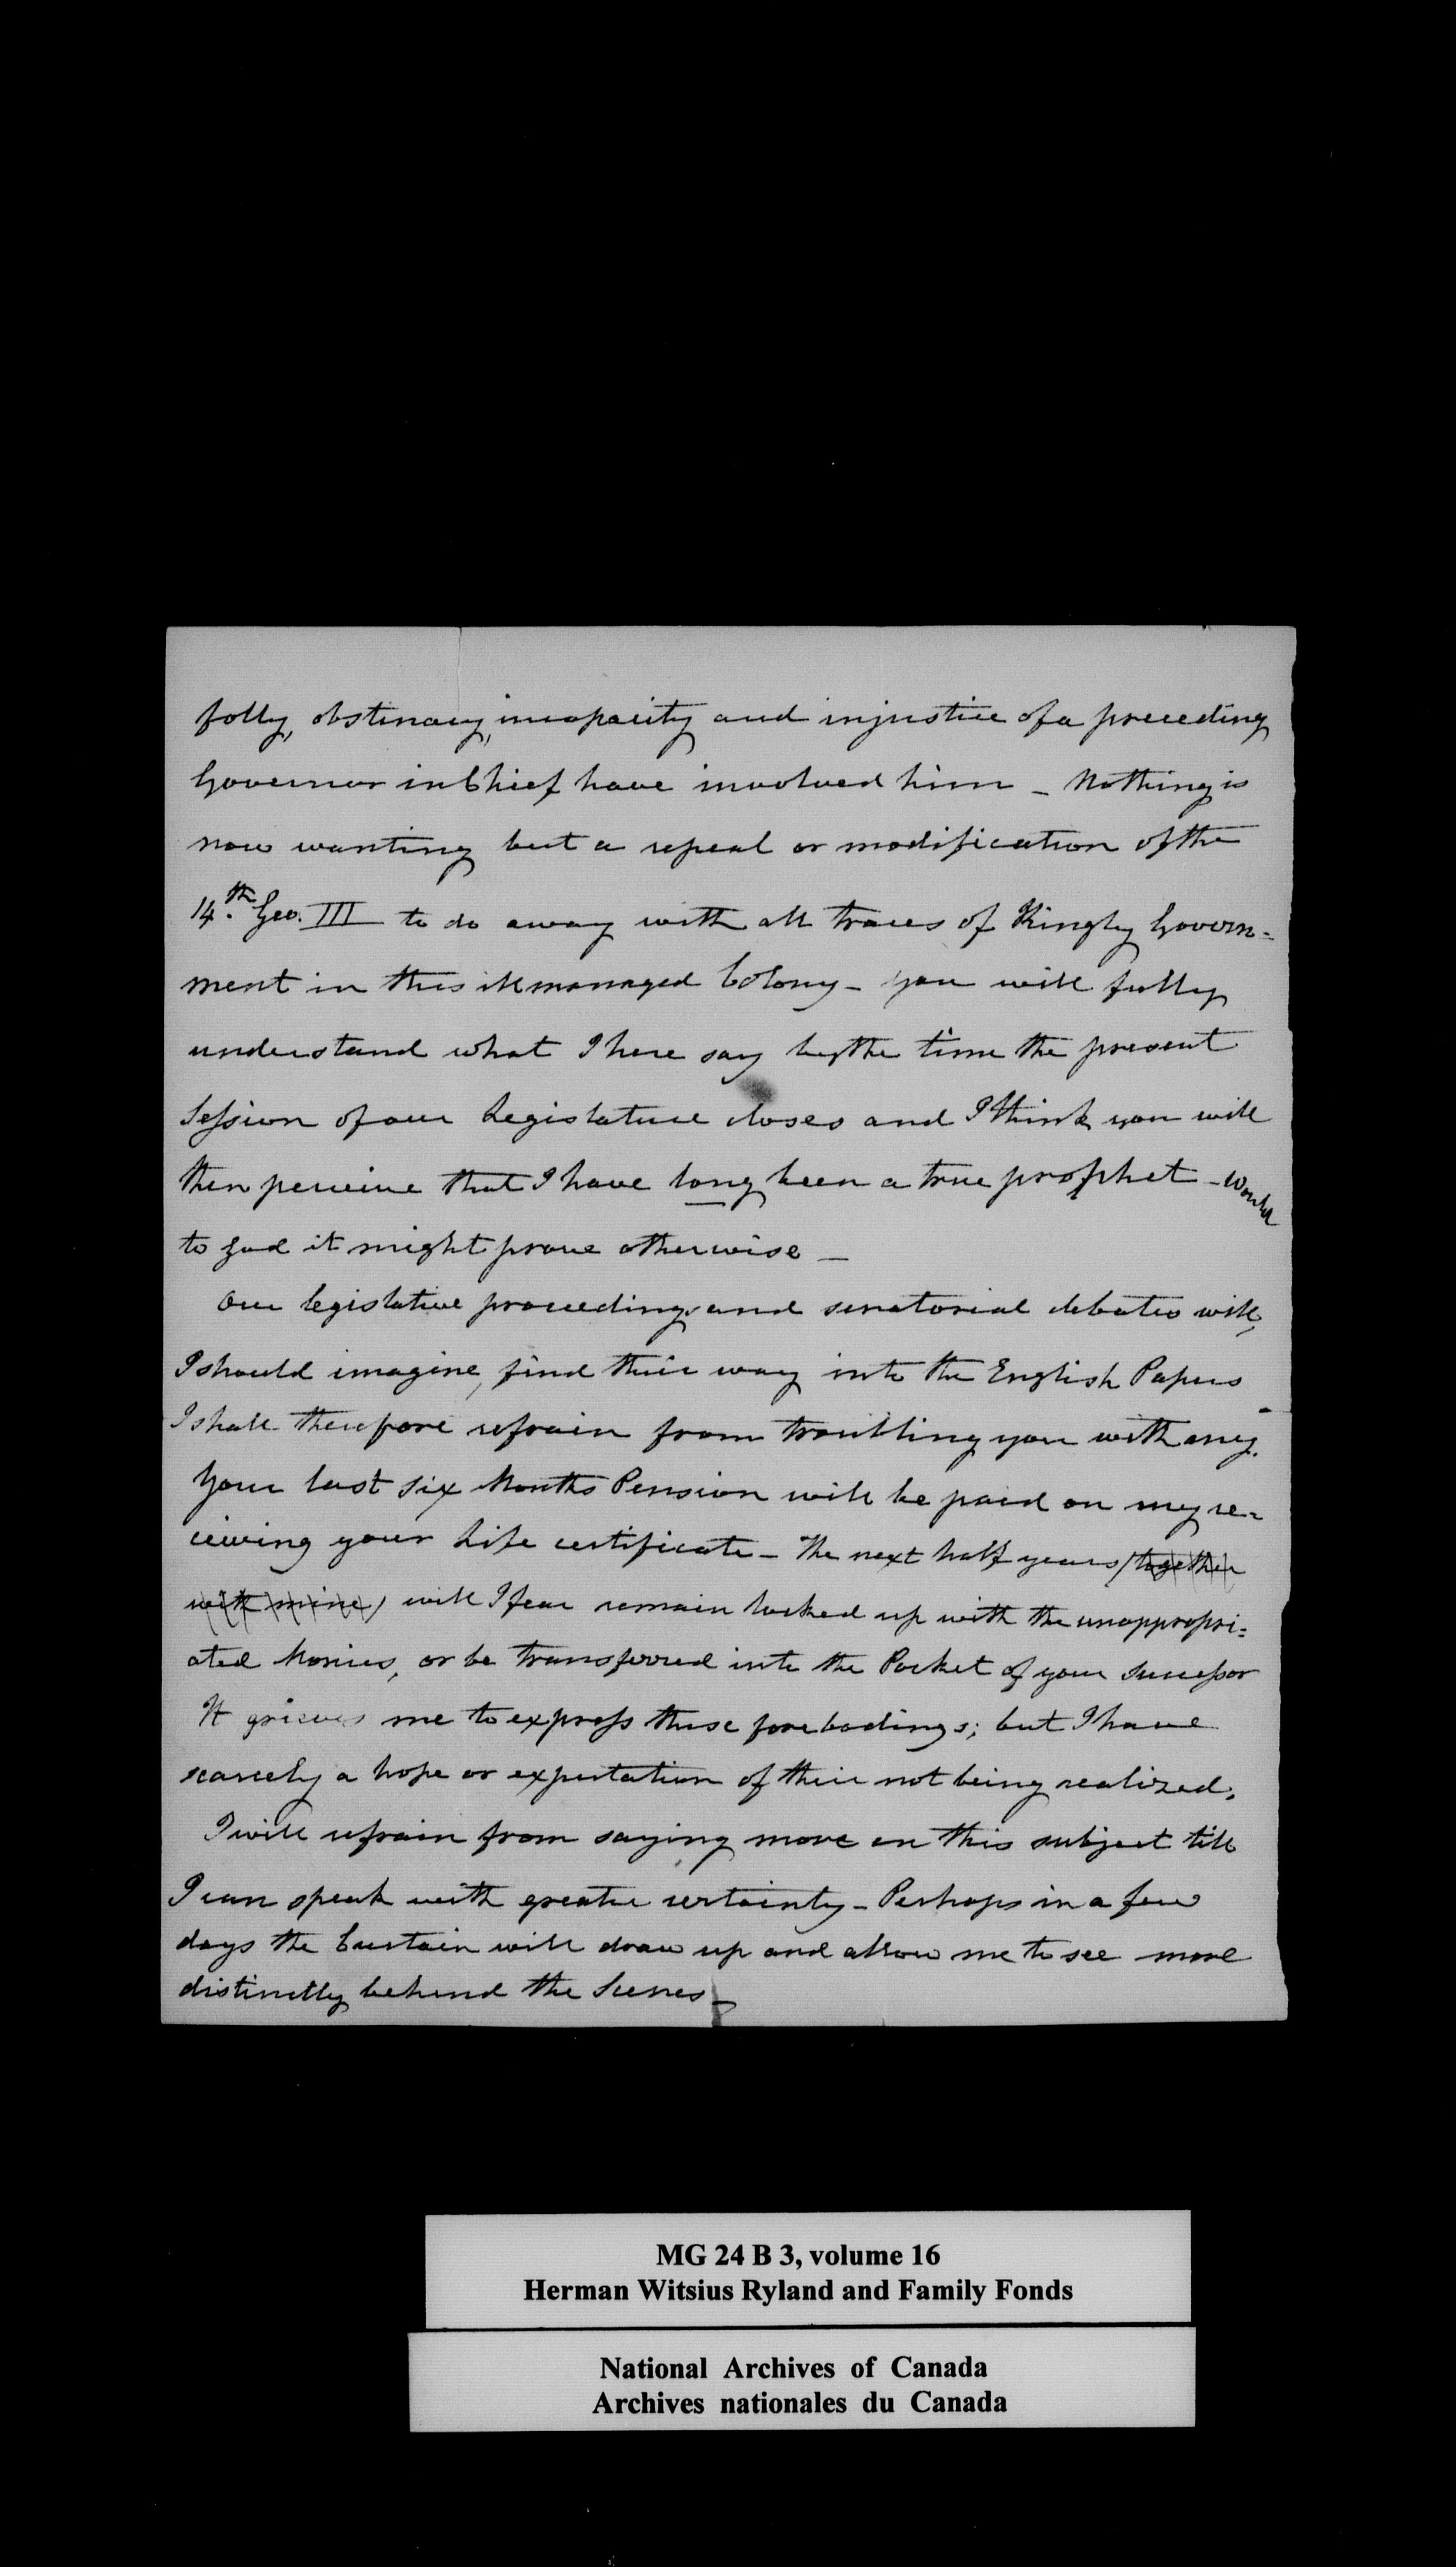 folly, obstinacy, incapacity and injustice of a preceding
Governor in Chief have involved him – Nothing is
now wanting but a repeal or modification of the
14.th Geo. III to do away with all traces of Kingly Govern=
ment in this ill managed Colony – you will fully
understand what I here say by the time the present
Session of our Legislature closes and I think you will
then perceive that I have long been a true prophet – Would
to god it might prove otherwise –
Our legislative proceedings and senatorial debates will,
I should imagine, find their way into the English Papers
I shall therefore refrain from troubling you with any.
Your last six Months Pension will be paid on my re-
ceiving your Life certificate – The next half years (together
with mine) will I fear remain locked up with the unappropri=
ated Monies, or be transferred into the Pocket of your Successor
It grieves me to express these forebodings; but I have
scarcely a hope or expectation of their not being realized.
I will refrain from saying more on this subject till
I can speak with greater certainty – Perhaps in a few
days the Curtain will draw up and allow me to see more
distinctly behind the Scenes –
MG 24 B 3, volume 16
Herman Witsius Ryland and Family Fonds
National Archives of Canada
Archives nationales du Canada